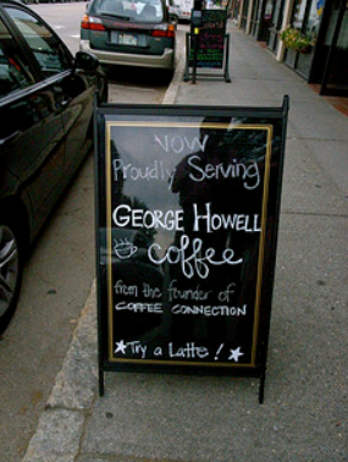 NOW
Proudly Serving
GEORGE HOWELL
coffee
from the founder of
COFFEE CONNECTION
Try a Latte!